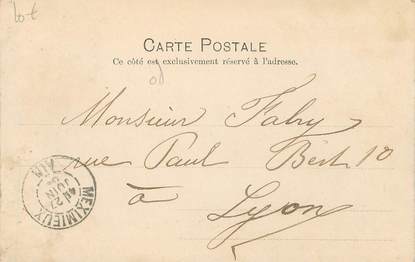 CARTE POSTALE
Ce côté est exclusivement réservé à l'adresse.
Monsieur Fabry
rue Paul Bert 10
à
Lyon
MEXIMIEUX
27
JUIN
AIN